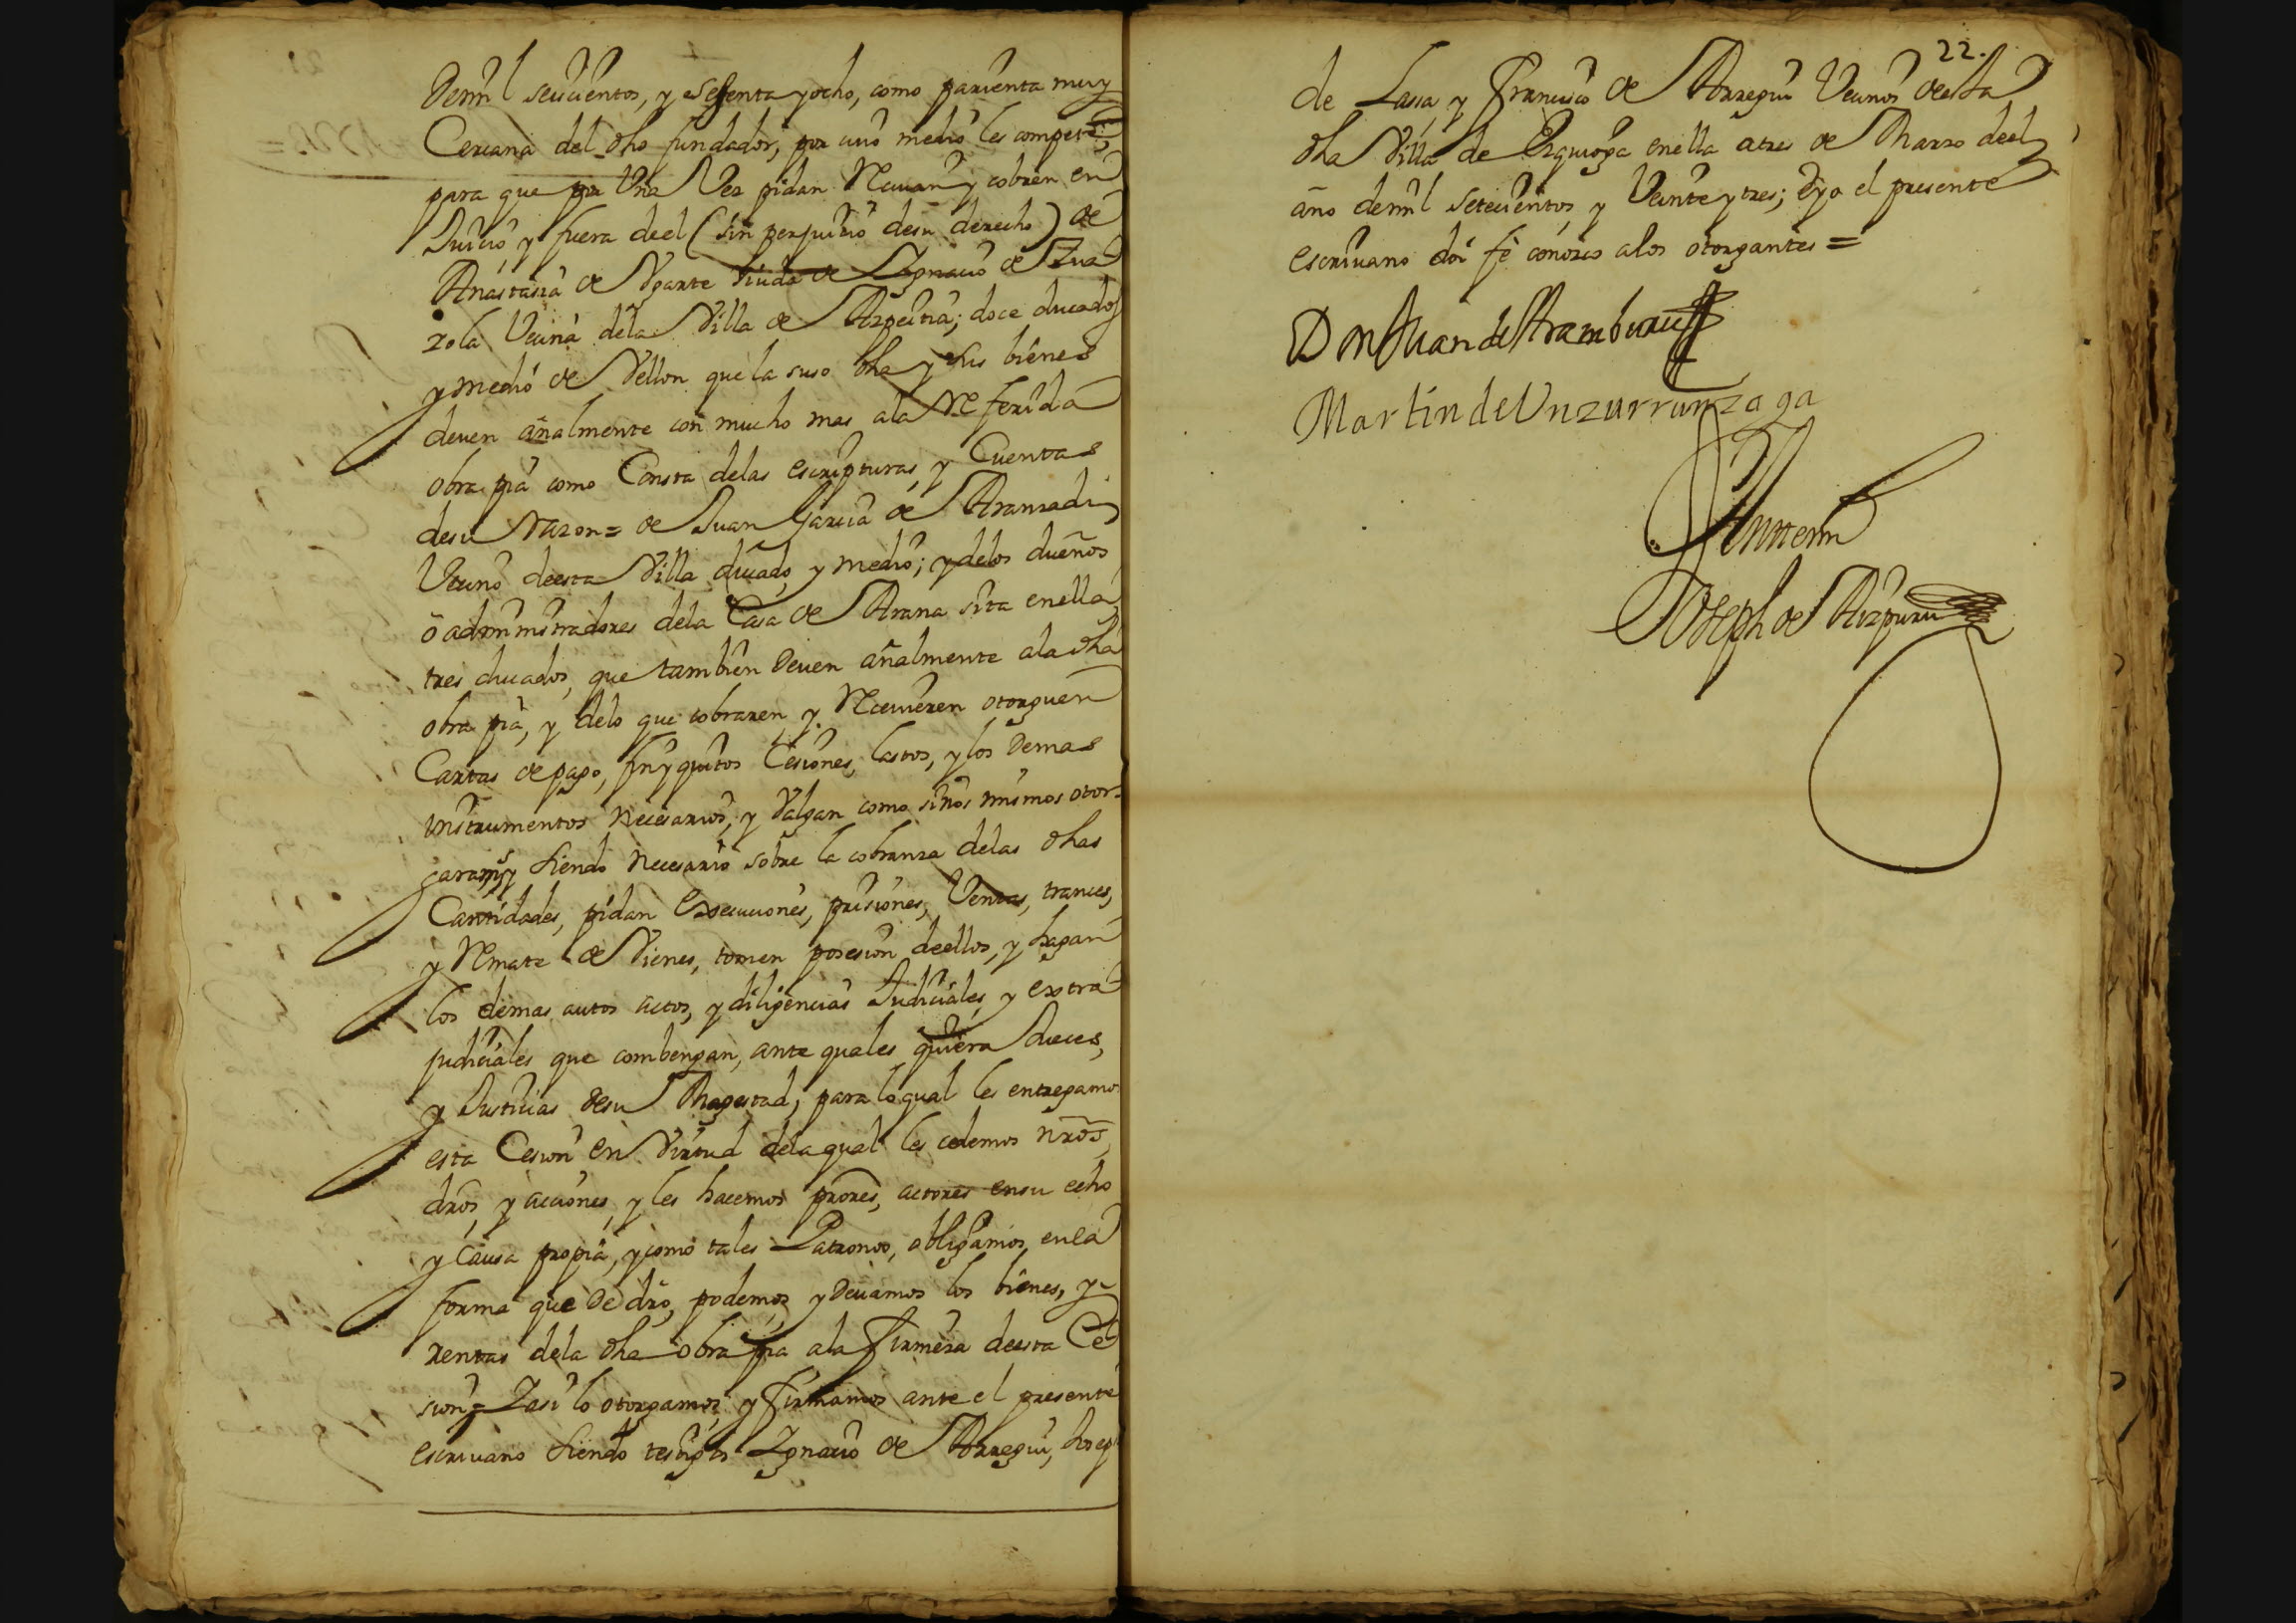 Demil seucientos, y sesenta yocho, como parienta muy
Cercana del dho fundador, por cuio medio les compete;
para que por Una Vez pidan Reciuan y cobren en
Juicio y fuera deel (sin perjuicio desu derecho) de
Anastasia de Vgarte Viuda de Ygnacio de Zua
zola Vecina dela Villa de Azpeitia; doce ducados
y medio de Vellon que la suso dha y sus bienes
deuen añalmente con mucho mas ala Referida
obra pia como Consta delas escripturas, y Cuentas
desu Razon = de Juan Garcia de Aranzadi
Vecino deesta Villa ducado y medio; ydelos dueños
ô administradores dela Casa de Arana sita enella
tres ducados, que tambien Deuen añalmente ala dha
obra pia, y delo que cobraren y Recivieren otorguen
Cartas de pago, finyquitos Cesiones, lastos, y los Demas
instrumentos necesarios, y Valgan como sinos mismos otor-
garamos y siendo necesario sobre la cobranza delas dhas
Cantidades, pidan Execuciones, prisiones, Ventas, trances,
y Remate de Vienes, tomen posesion deellos, y hagan
los demas autos actos, y diligencias Judiciales y extra
judiciales que combengan, ante quales quiera Jueces,
y Justicias desu Magestad; para loqual les entregamos
esta Cesion en Virtud delaqual les cedemos nros
dros, y acciones, y les hacemos prores, actores ensu echo
y Causa propia, y como tales Patronos, obligamos enla
forma que De dro, podemos y Deuamos los bienes, y
rentas dela dha obra pia ala firmeza deesta Ce
sion = Y asi lo otorgamos y firmamos ante el presente
escriuano siendo testigos Ygnacio de Arregui, Joseph
22.
de Lasa, y Francisco de Arregui Vecinos deesta
dha Villa de Ezquioga enella atres de Marzo deel
año demil setecientos, y Veinte y tres; Eyo el presente
escriuano doi fê conozco alos otorgantes =
Don Juan de Aramburu
Martin de Unzurrunzaga
Antemi
Joseph de Aizpuru